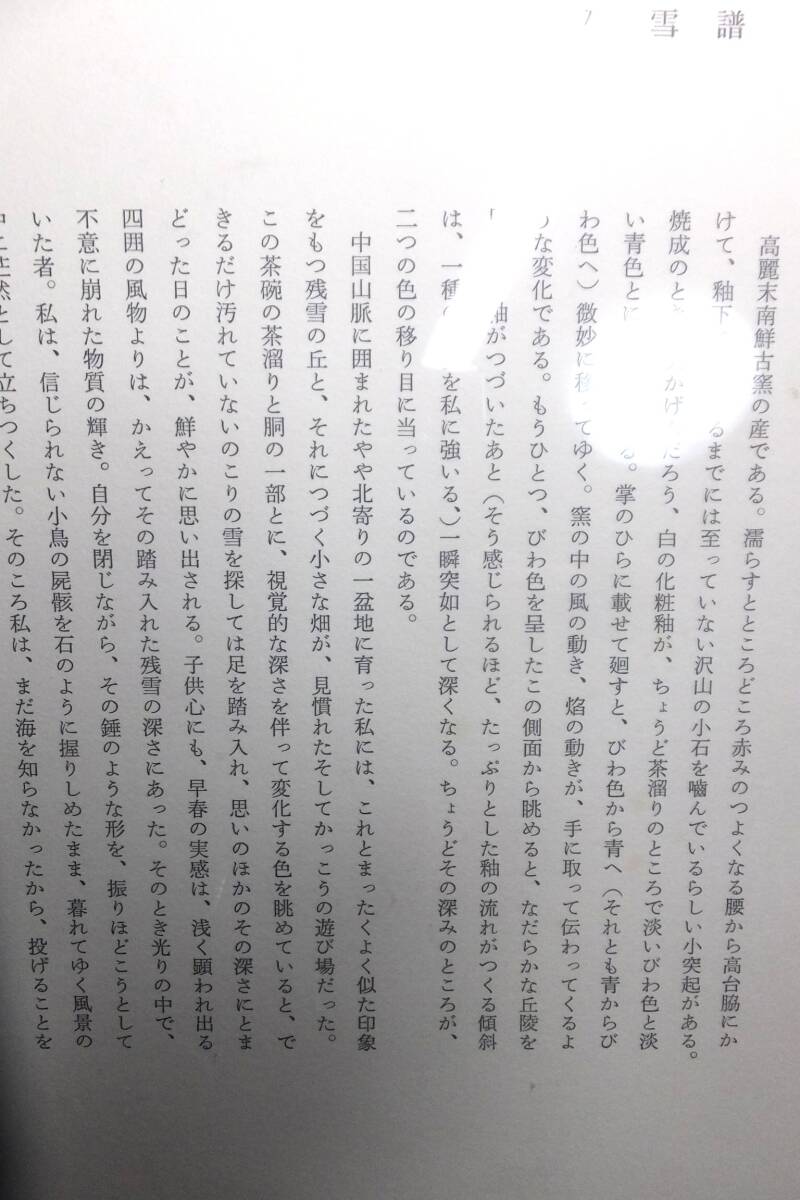 雪譜
7
高麗末南鮮古窯の産である。濡らすとところどころ赤みのつよくなる腰から高台脇にか
けて、釉下 るまでには至っていない沢山の小石を嚙んでいるらしい小突起がある。
焼成のと かげ だろう、白の化粧釉が、ちょうど茶溜りのところで淡いびわ色と淡
い青色とに る。掌のひらに載せて廻すと、びわ色から青へ（それとも青からび
わ色へ）微妙に移ってゆく。窯の中の風の動き、焰の動きが、手に取って伝わってくるよ
うな変化である。もうひとつ、びわ色を呈したこの側面から眺めると、なだらかな丘陵を
釉がつづいたあと（そう感じられるほど、たっぷりとした釉の流れがつくる傾斜
は、一種 を私に強いる、）一瞬突如として深くなる。ちょうどその深みのところが、
二つの色の移り目に当っているのである。
中国山脈に囲まれたやや北寄りの一盆地に育った私には、これとまったくよく似た印象
をもつ残雪の丘と、それにつづく小さな畑が、見慣れたそしてかっこうの遊び場だった。
この茶碗の茶溜りと胴の一部とに、視覚的な深さを伴って変化する色を眺めていると、で
きるだけ汚れていないのこりの雪を探しては足を踏み入れ、思いのほかのその深さにとま
どった日のことが、鮮やかに思い出される。子供心にも、早春の実感は、浅く顕われ出る
四囲の風物よりは、かえってその踏み入れた残雪の深さにあった。そのとき光りの中で、
不意に崩れた物質の輝き。自分を閉じながら、その錘のような形を、振りほどこうとして
いた者。私は、信じられない小鳥の屍骸を石のように握りしめたまま、暮れてゆく風景の
中に茫然として立ちつくした。そのころ私は、まだ海を知らなかったから、投げることを